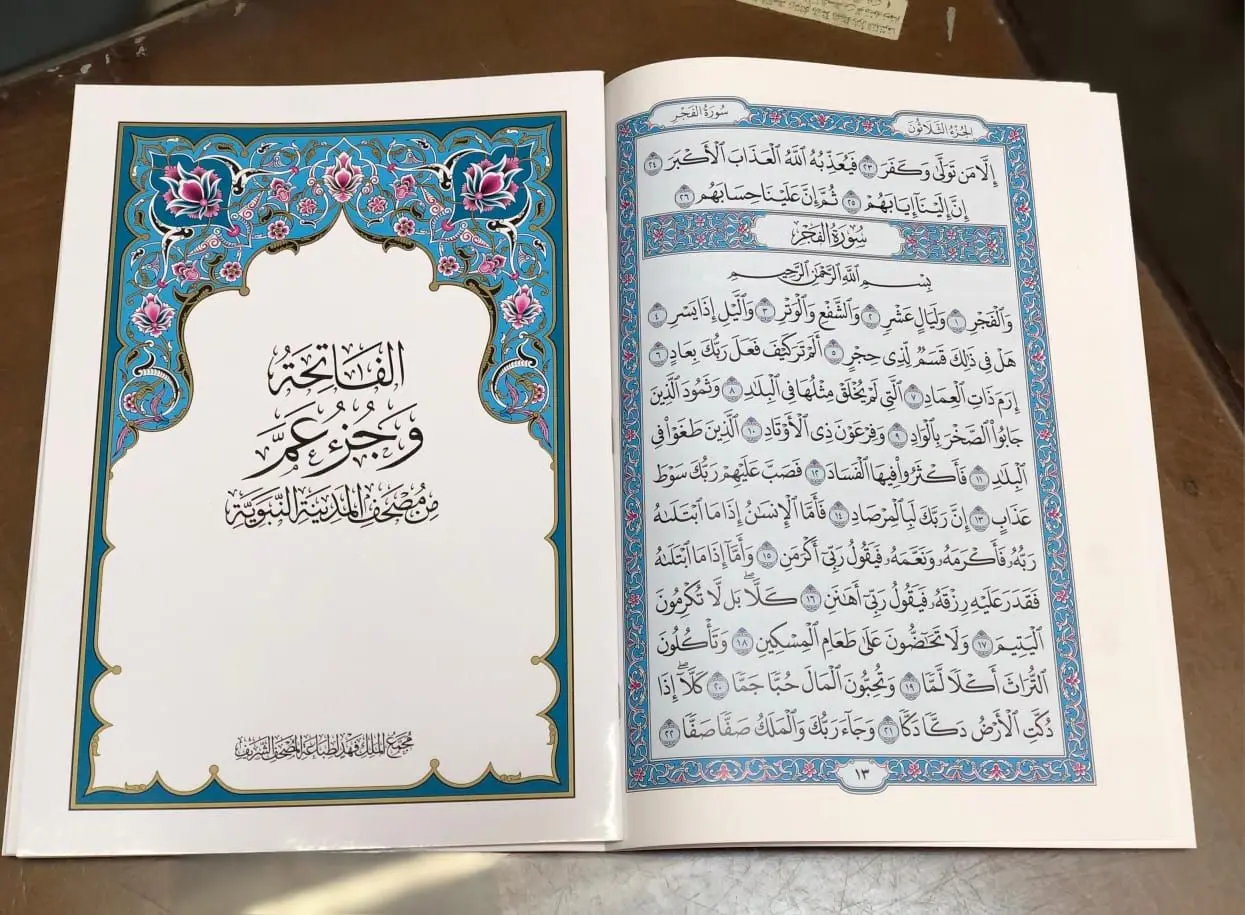 الفَاتِحَةُ
وَجُزْءُ عَمَّ
مِن مُصْحَفِ المَدِينَةِ النَّبَوِيَّةِ
مجمع الملك فهد لطباعة المصحف الشريف
الجُزْءُ الثَّلَاثُونَ
سُورَةُ الفَجْرِ
إِلَّا مَن تَوَلَّىٰ وَكَفَرَ ٢٣ فَيُعَذِّبُهُ ٱللَّهُ ٱلْعَذَابَ ٱلْأَكْبَرَ ٢٤
إِنَّ إِلَيْنَآ إِيَابَهُمْ ٢٥ ثُمَّ إِنَّ عَلَيْنَا حِسَابَهُم ٢٦
سُورَةُ الفَجْرِ
بِسْمِ ٱللَّهِ ٱلرَّحْمَٰنِ ٱلرَّحِيمِ
وَٱلْفَجْرِ ١ وَلَيَالٍ عَشْرٍ ٢ وَٱلشَّفْعِ وَٱلْوَتْرِ ٣ وَٱلَّيْلِ إِذَا يَسْرِ ٤
هَلْ فِي ذَٰلِكَ قَسَمٌ لِّذِي حِجْرٍ ٥ أَلَمْ تَرَ كَيْفَ فَعَلَ رَبُّكَ بِعَادٍ ٦
إِرَمَ ذَاتِ ٱلْعِمَادِ ٧ ٱلَّتِي لَمْ يُخْلَقْ مِثْلُهَا فِي ٱلْبِلَٰدِ ٨ وَثَمُودَ ٱلَّذِينَ
جَابُوا۟ ٱلصَّخْرَ بِٱلْوَادِ ٩ وَفِرْعَوْنَ ذِي ٱلْأَوْتَادِ ١٠ ٱلَّذِينَ طَغَوْا۟ فِي
ٱلْبِلَٰدِ ١١ فَأَكْثَرُوا۟ فِيهَا ٱلْفَسَادَ ١٢ فَصَبَّ عَلَيْهِمْ رَبُّكَ سَوْطَ
عَذَابٍ ١٣ إِنَّ رَبَّكَ لَبِٱلْمِرْصَادِ ١٤ فَأَمَّا ٱلْإِنسَٰنُ إِذَا مَا ٱبْتَلَىٰهُ
رَبُّهُۥ فَأَكْرَمَهُۥ وَنَعَّمَهُۥ فَيَقُولُ رَبِّيٓ أَكْرَمَنِ ١٥ وَأَمَّآ إِذَا مَا ٱبْتَلَىٰهُ
فَقَدَرَ عَلَيْهِ رِزْقَهُۥ فَيَقُولُ رَبِّيٓ أَهَٰنَنِ ١٦ كَلَّاۖ بَل لَّا تُكْرِمُونَ
ٱلْيَتِيمَ ١٧ وَلَا تَحَٰٓضُّونَ عَلَىٰ طَعَامِ ٱلْمِسْكِينِ ١٨ وَتَأْكُلُونَ
ٱلتُّرَاثَ أَكْلًا لَّمًّا ١٩ وَتُحِبُّونَ ٱلْمَالَ حُبًّا جَمًّا ٢٠ كَلَّآۖ إِذَا
دُكَّتِ ٱلْأَرْضُ دَكًّا دَكًّا ٢١ وَجَآءَ رَبُّكَ وَٱلْمَلَكُ صَفًّا صَفًّا ٢٢
١٣